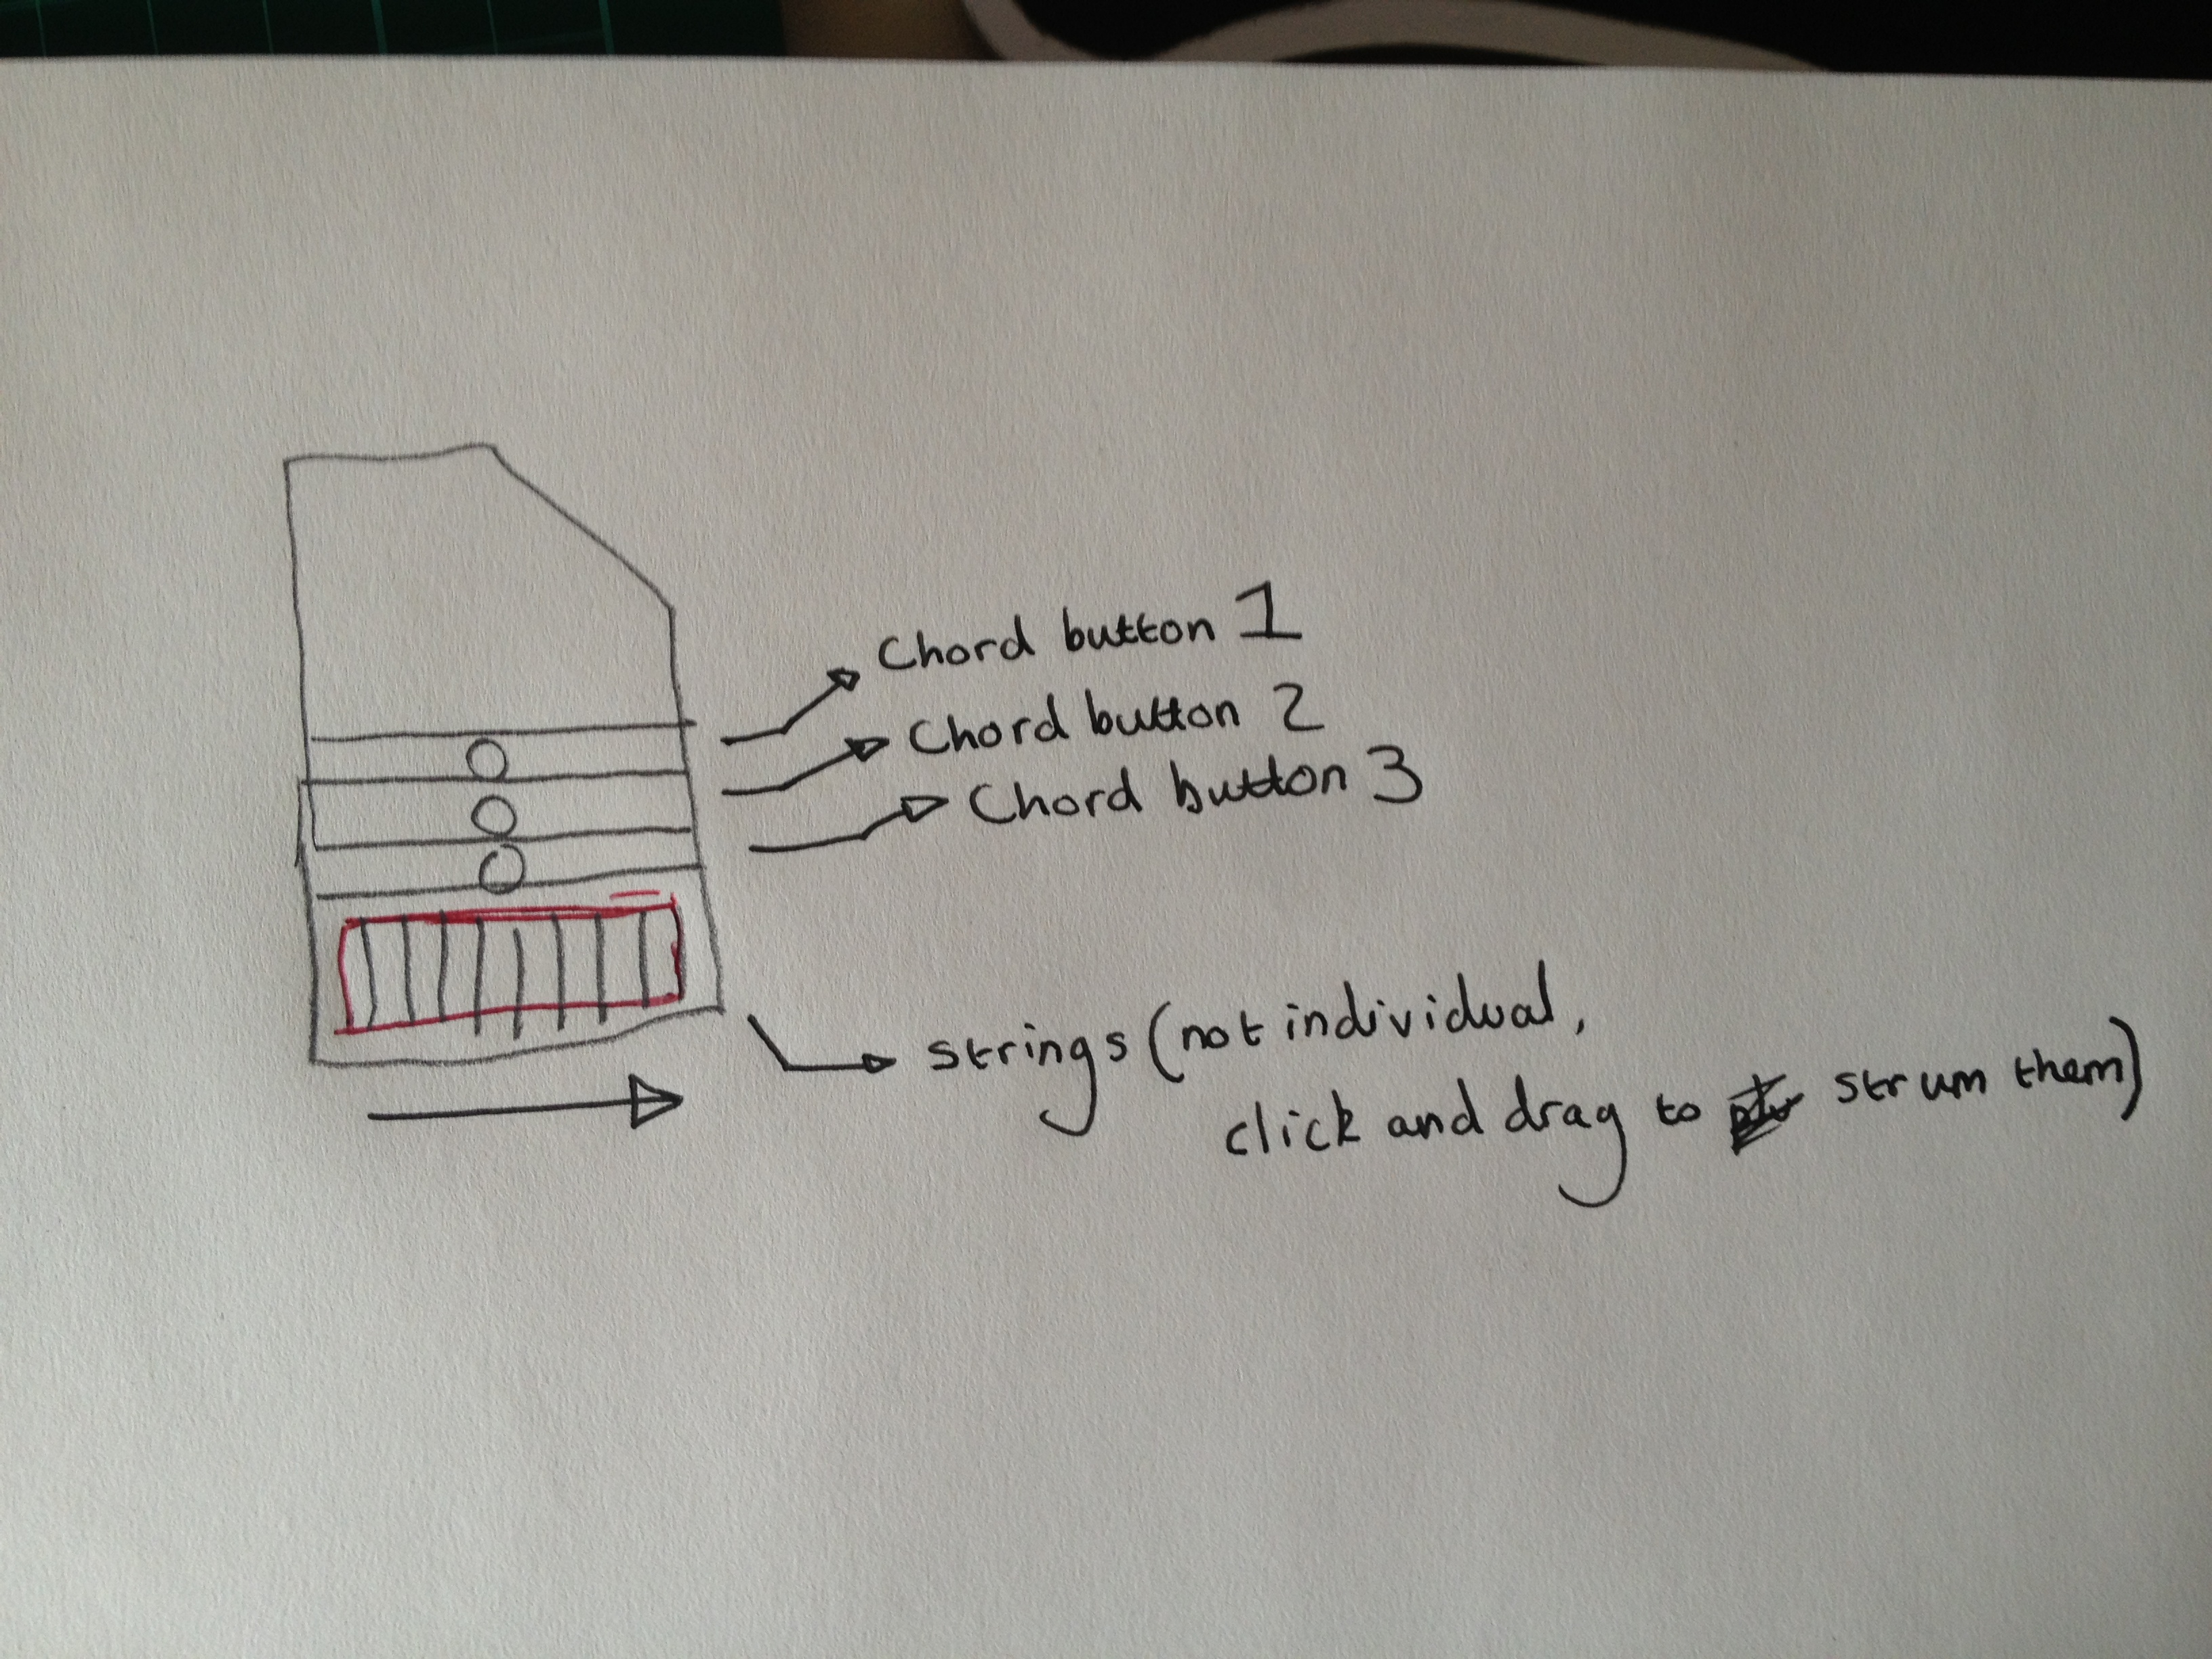 Chord button 1
Chord button 2
Chord button 3
strings (not individual,
click and drag to strum them)